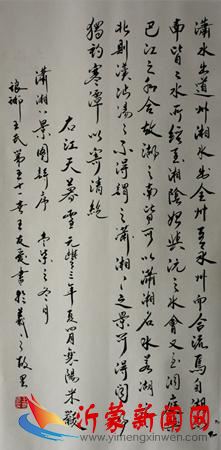 潇水出道州湘水出全州至永州而合流焉自湖
南皆二水所经至湘阴始与沅之水会又至洞庭与
巴江之水合故湖之南皆可以潇湘名水若湖
北则汉沔荡荡不得谓之潇湘潇湘之景可得闻
独钓寒潭以寄清绝
右江天暮雪 元丰三年夏四月襄阳米黻
潇湘八景图诗序
琅琊王氏第五十 王友爱书于羲之故里
沂蒙新闻网
www.yimengxinwen.com